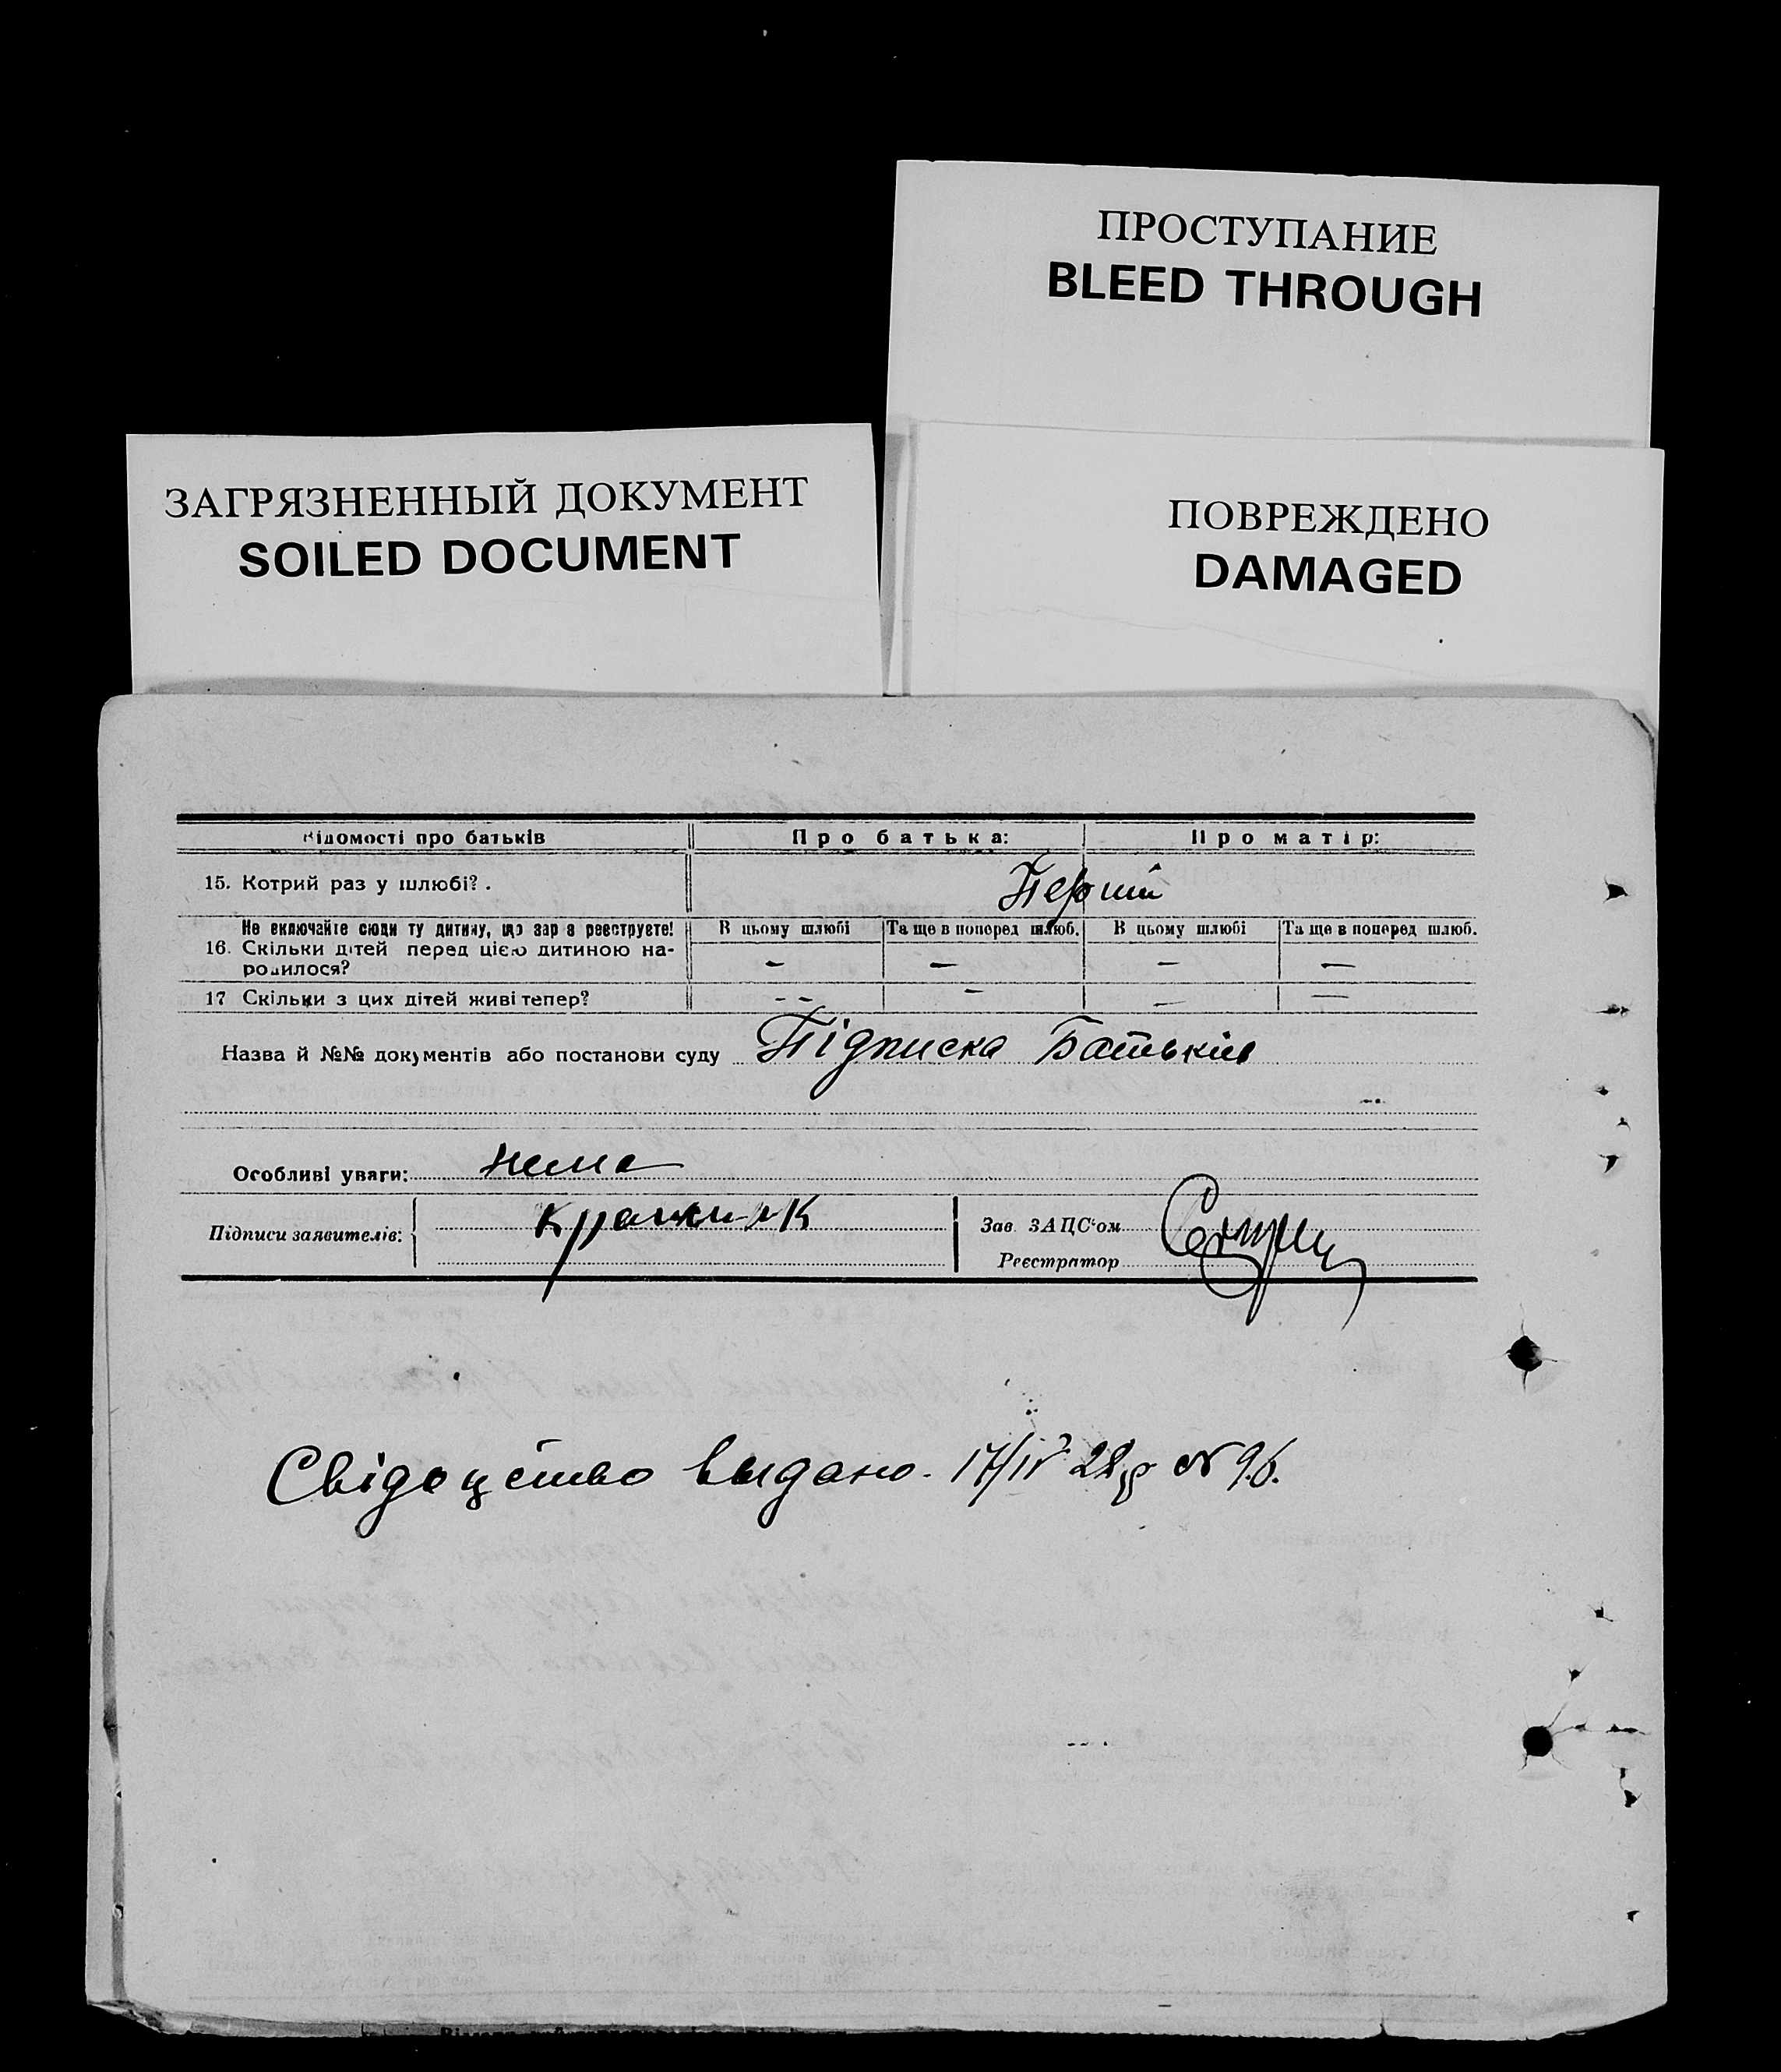 ПРОСТУПАНИЕ
BLEED THROUGH
ЗАГРЯЗНЕННЫЙ ДОКУМЕНТ
SOILED DOCUMENT
ПОВРЕЖДЕНО
DAMAGED
Відомості про батьків Про батька: Про матір:
15. Котрий раз у шлюбі? . Перший
Не включайте сюди ту дитину, що зараз реєструєте! В цьому шлюбі Та ще в поперед шлюб. В цьому шлюбі Та ще в поперед шлюб.
16. Скільки дітей перед цією дитиною на- — — — —
родилося?
17 Скільки з цих дітей живі тепер? - - - — —
Назва й №№ документів або постанови суду Підписка Батьків
Особливі уваги: нема
Підписи заявителів: Зав. ЗАЦС'ом
Реєстратор
Свідоцтво выдано. 17/IV 28 р № 96.